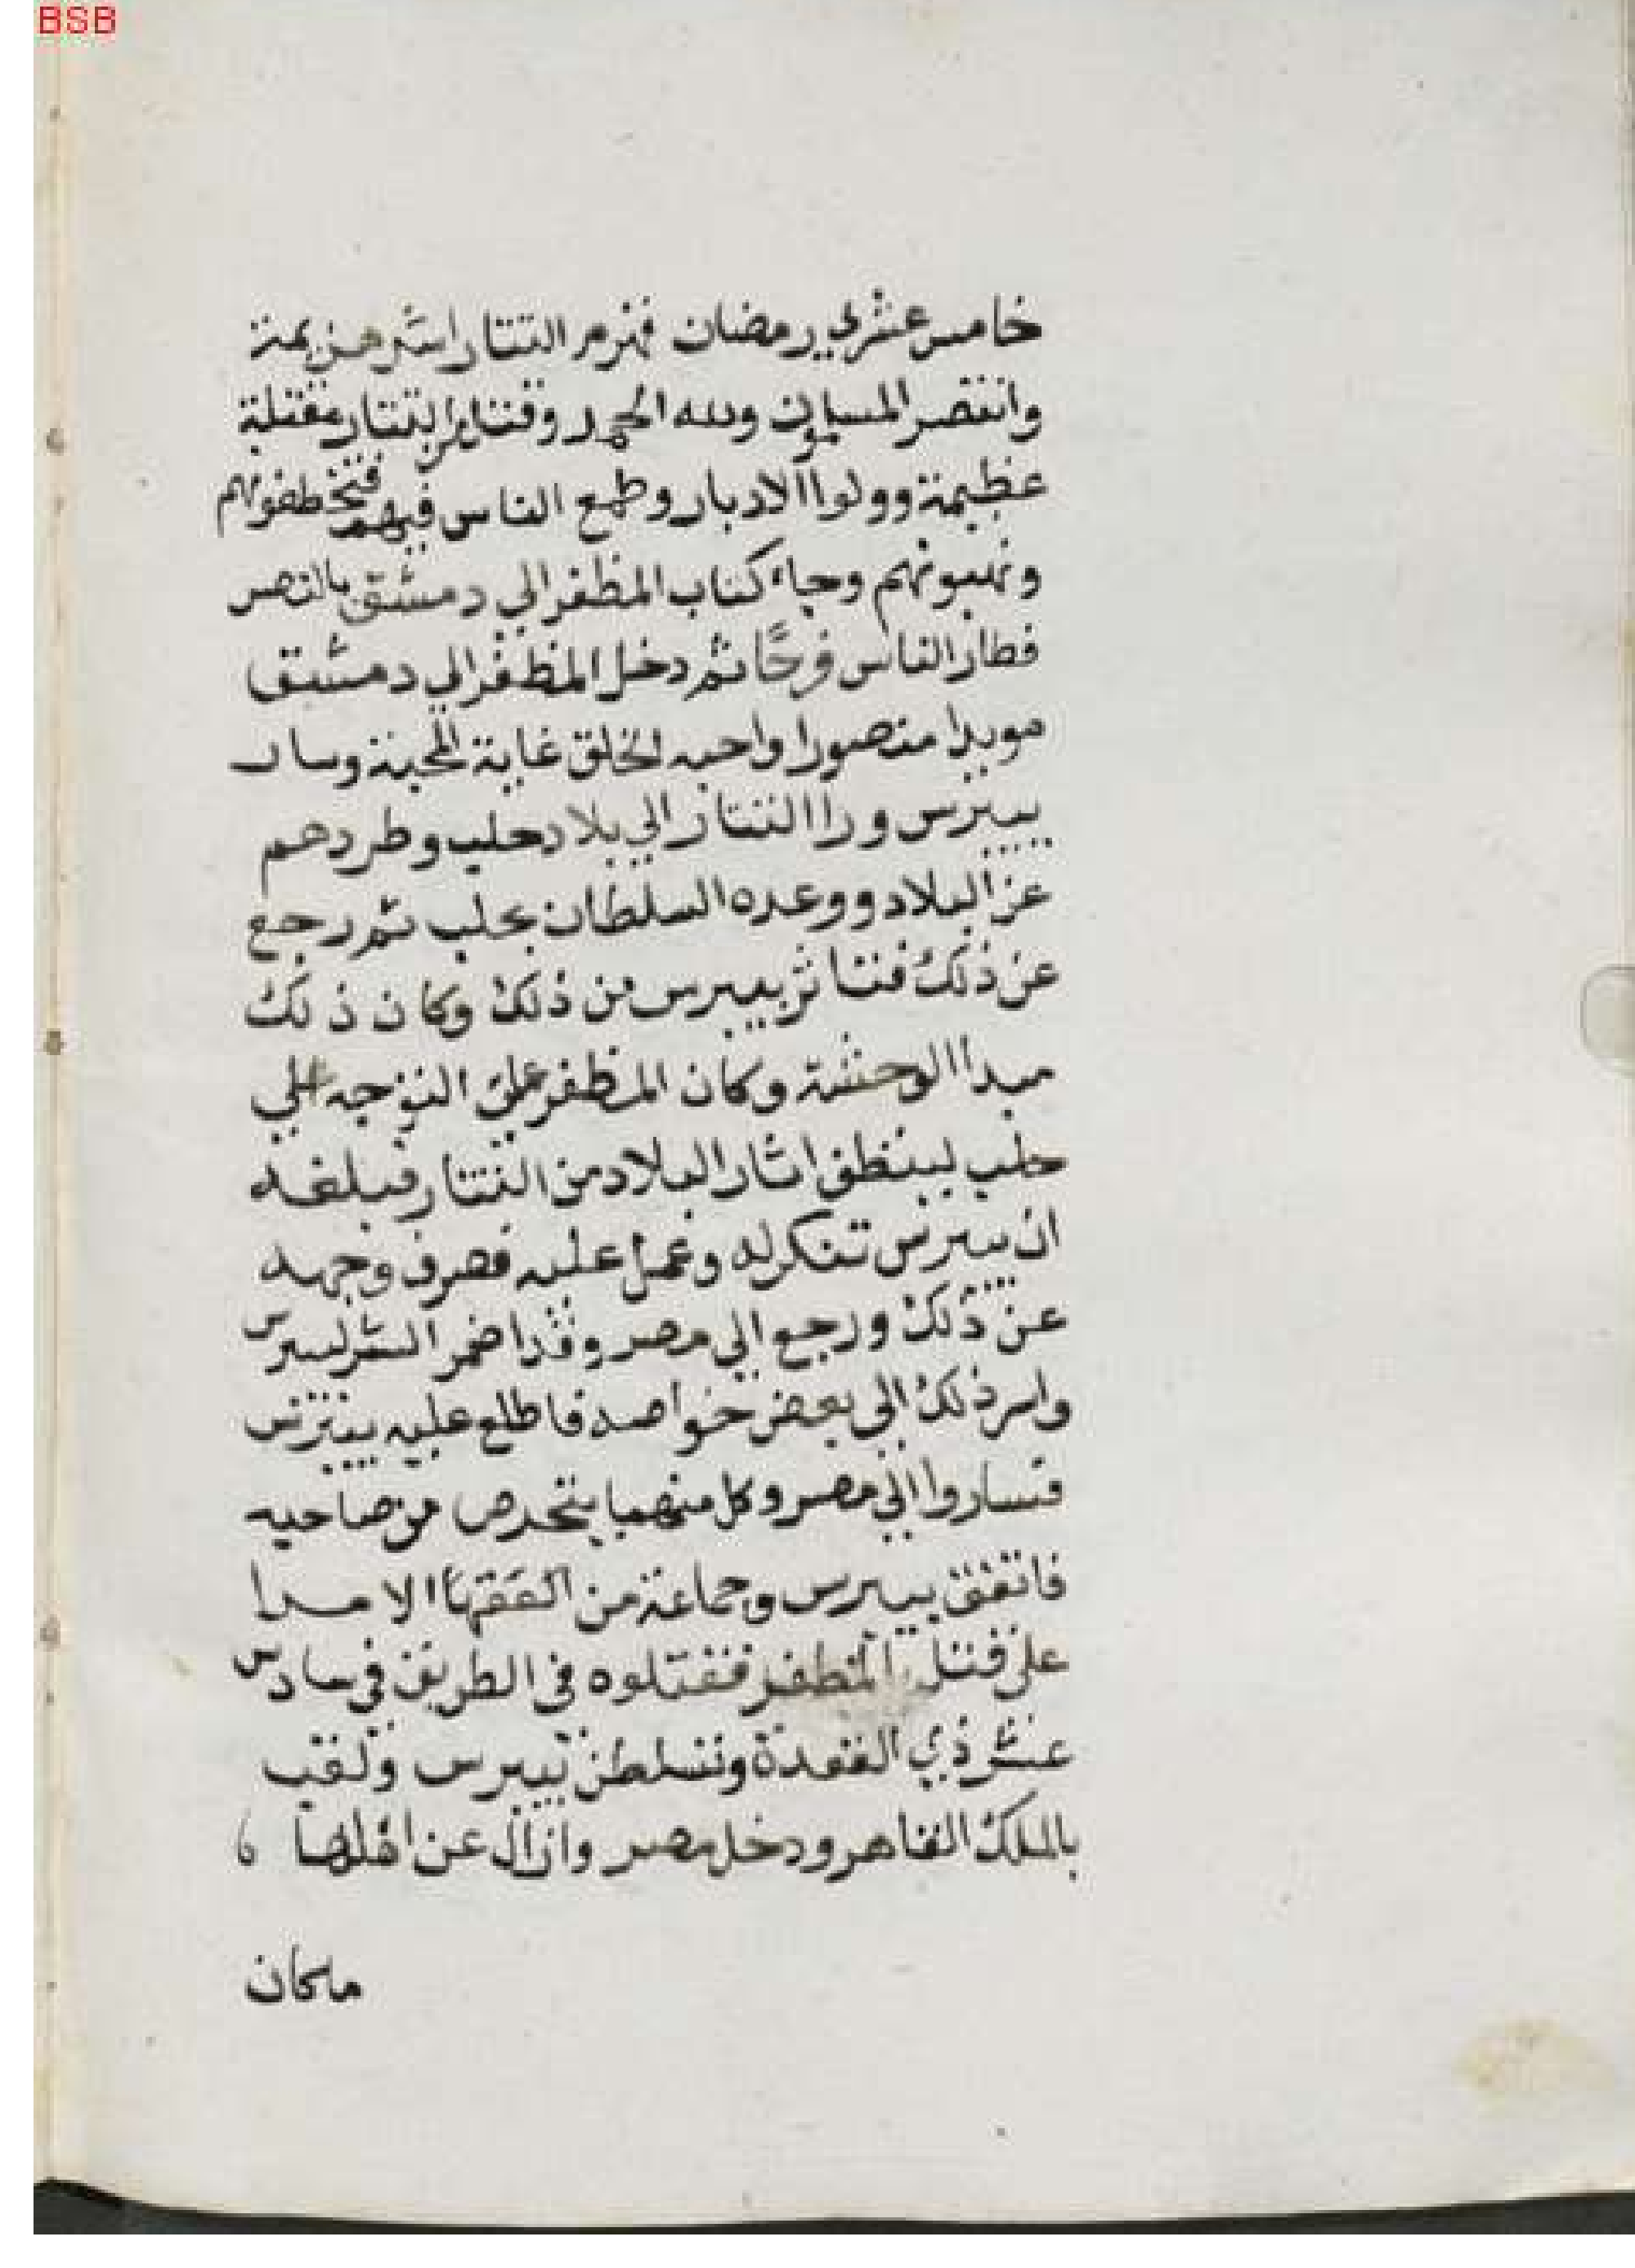 BSB
خامس عشري رمضان فهزم التتار اشر هزيمة
وانتصر المسلمون ولله الحمد وقتل من التتار مقتلة
عظيمة وولوا الادبار وطمع الناس فيهم فتخطفونهم
ونهبونهم وجاء كتاب المظفر الي دمشق بالنصر
فطار الناس فرحًا ثم دخل المظفر الي دمشق
مويدا منصورا واحبه الخلق غاية المحبة وسار
بيبرس ورا التتار الي بلاد حلب وطردهم
عن البلاد ووعده السلطان بحلب ثم رجع
عن ذلك فتاثر بيبرس من ذلك وكان ذلك
مبدا الوحشة وكان المظفر على التوجه الي
حلب لينظف اثار البلاد من التتار فبلغه
ان بيبرس تنكر له وعمل عليه فصرف وجهه
عن ذلك ورجع الي مصر وقد اضمر الشر لبيبرس
واسر ذلك الي بعض خواصه فاطلع عليه بيبرس
فساروا الي مصر وكل منهما يتحرص من صاحبه
فاتفق بيبرس وجماعة من الامرا
على قتل المظفر فقتلوه في الطريق في سادس
عشر ذي القعدة وتسلطن بيبرس ولقب
بالملك القاهر ودخل مصر وازال عن اهلها
ماكان